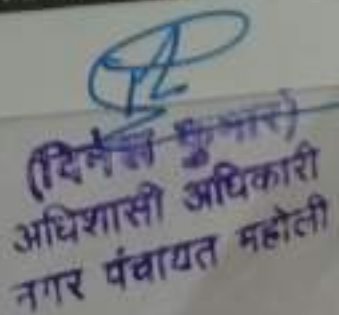 (दिनेश कुमार)
अधिशासी अधिकारी
नगर पंचायत महोली